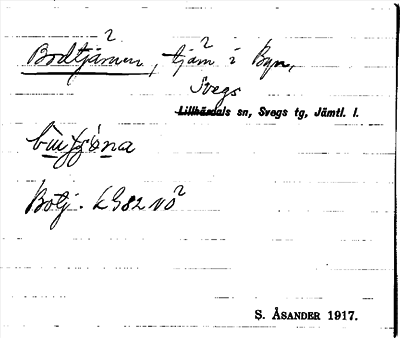 Bodtjärnen, tjärn i Byn,
Svegs
Lillhärdals sn, Svegs tg, Jämtl. l.
Botj. LG82 NÖ
S. ÅSANDER 1917.